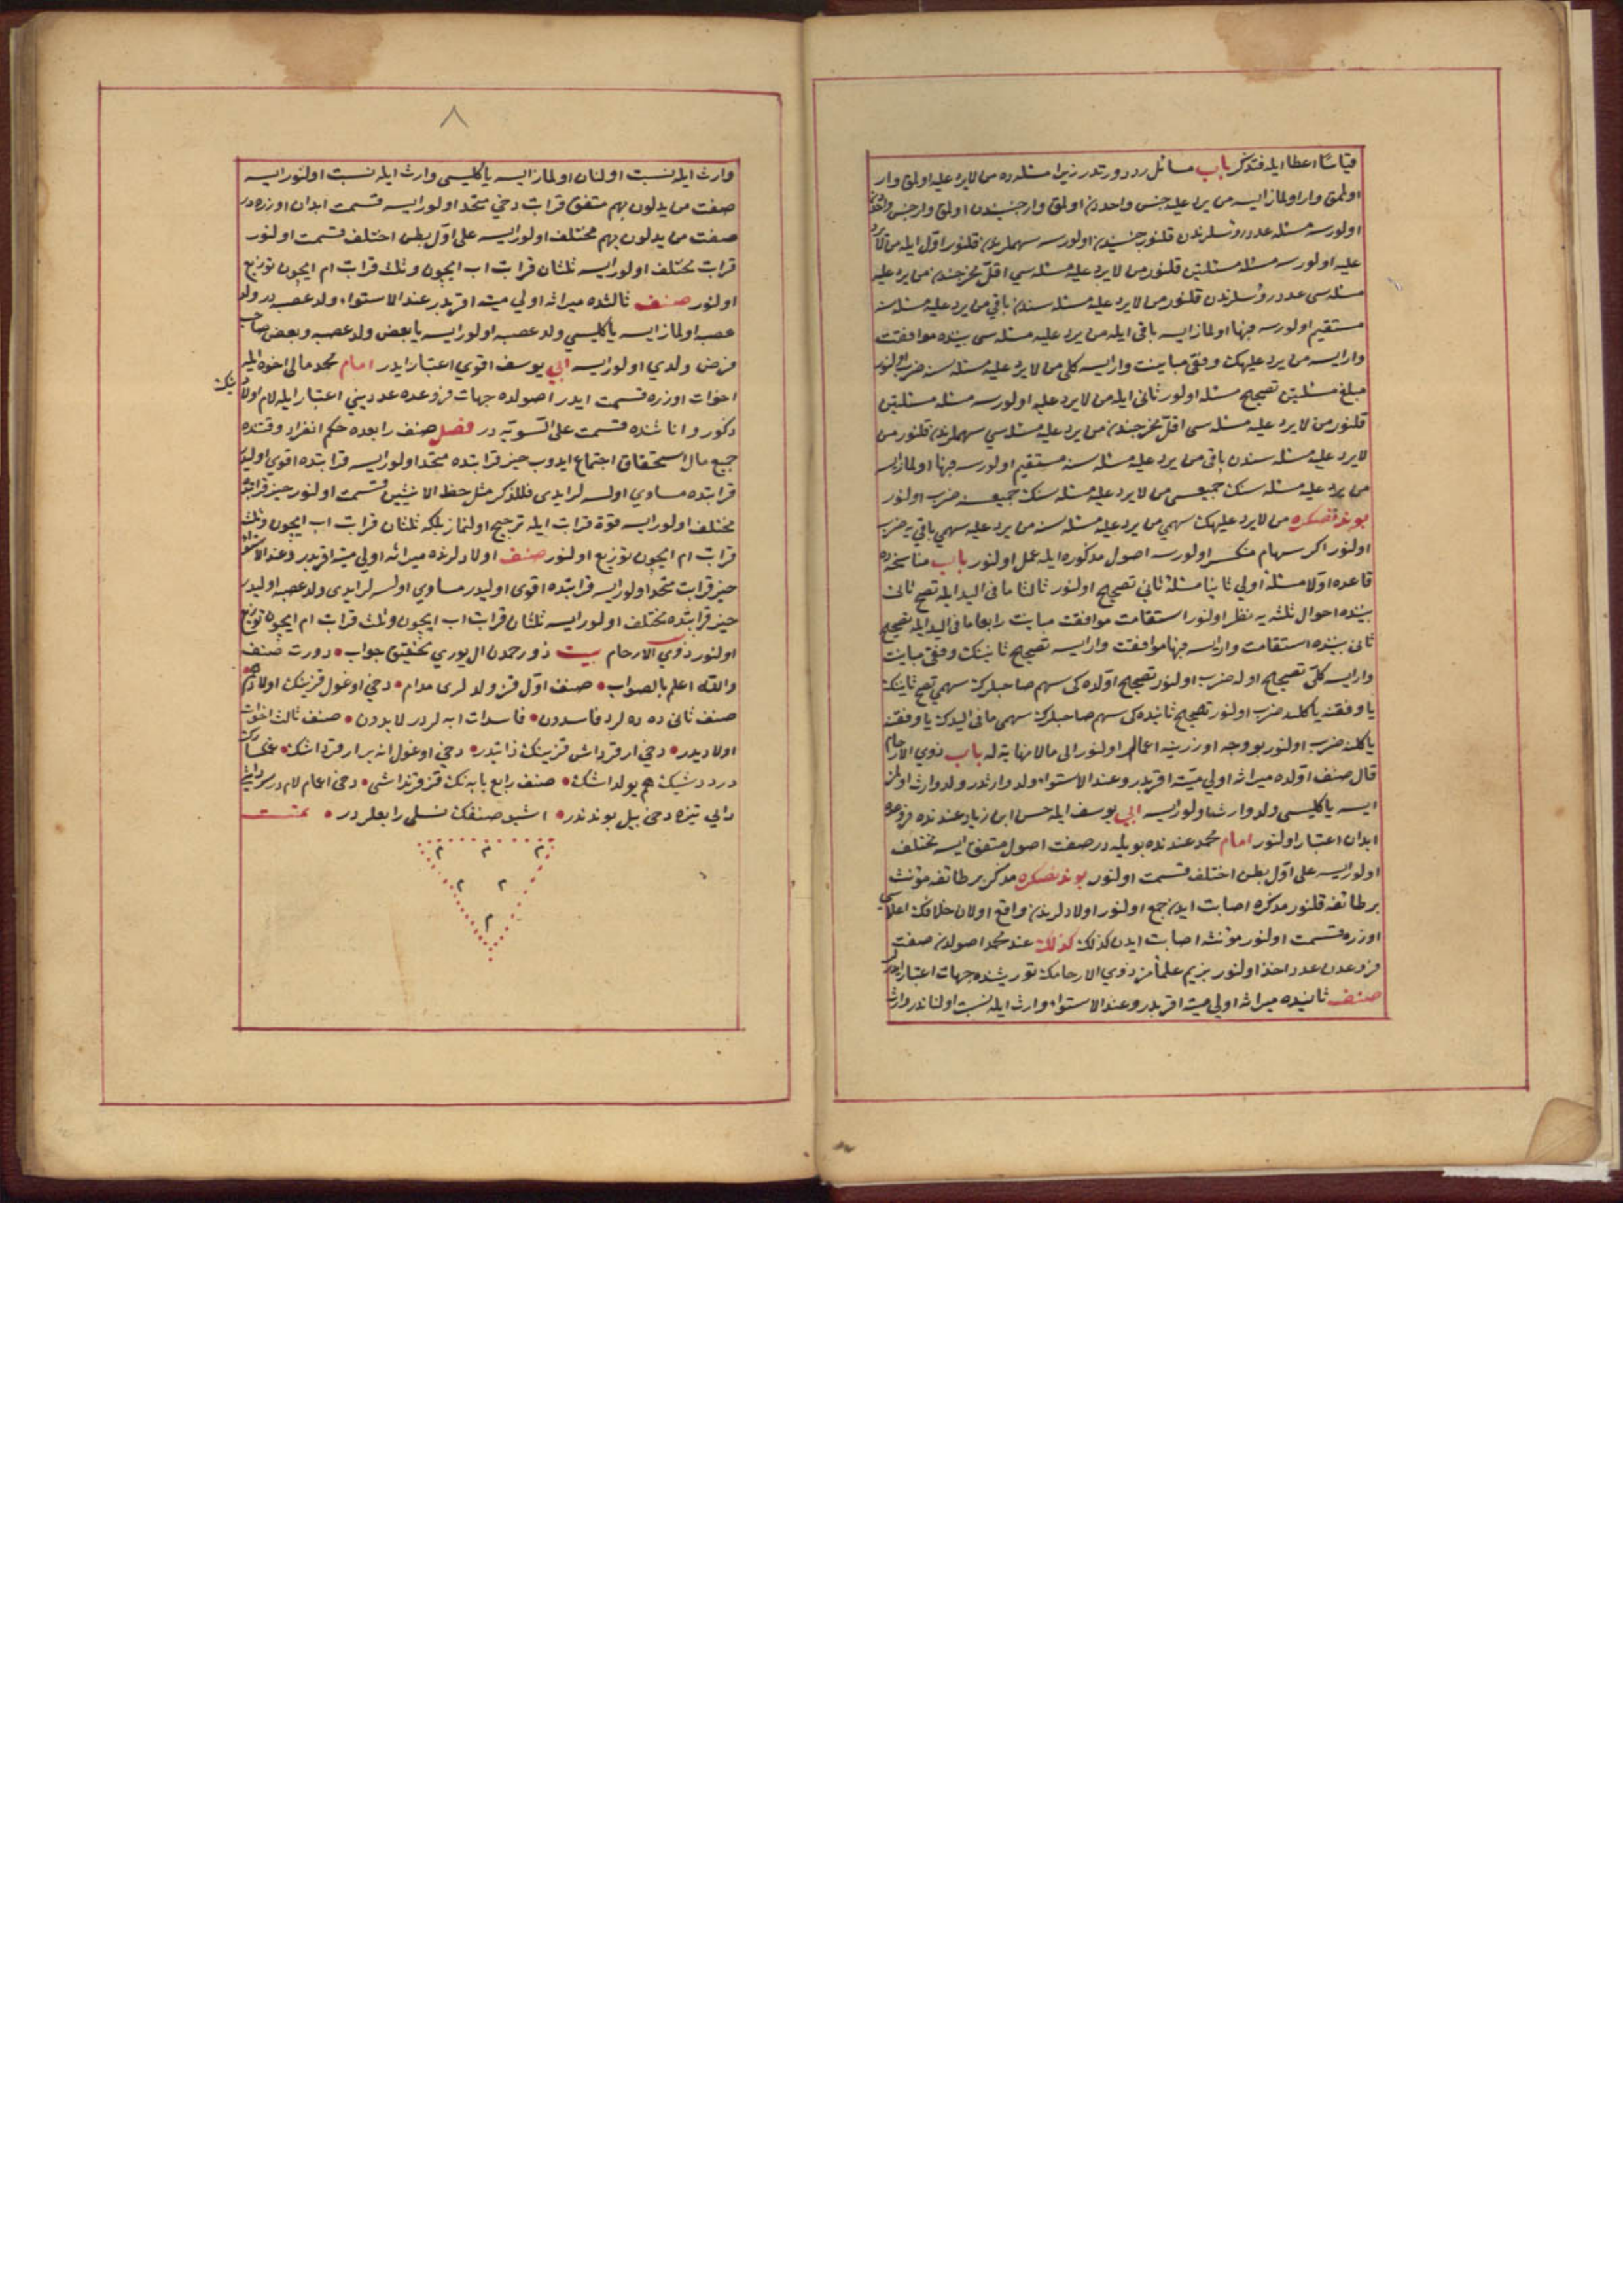 قياسًا اعطا ايله فتذكر باب مسائل ردده درتدر زيرا مسئله ده من لا يرد عليه اولمق وار
اولمق وار اولماز ايسه من يرد عليه جنس واحددن اولمق وار جنسيندن اولمق وار جنس واحددن
اولورسه مسئله عدد رؤسلرندن قلنور جنسيندن اولورسه سهملرندن قلنور اول ايله من لا يرد
عليه اولورسه مسئله مسئلتين قلنور من لا يرد عليه مسئله سي اقل مخرجندن من يرد عليه
مسئله سى عدد رؤسلرندن قلنور من لا يرد عليه مسئله سندن باقي من يرد عليه مسئله سنه
مستقيم اولورسه فبها اولماز ايسه باقى ايله من يرد عليه مسئله سى بيننده موافقت
وار ايسه من يرد عليهك وفقى مباينت وار ايسه كلى من لا يرد عليه مسئله سنه ضرب اولنور
مبلغ مسئلتين تصحيح مسئله اولور ثانى ايله من لا يرد عليه اولورسه مسئله مسئلتين
قلنور من لا يرد عليه مسئله سى اقل مخرجندن من يرد عليه مسئله سي سهملرندن قلنور من
لا يرد عليه مسئله سندن باقى من يرد عليه مسئله سنه مستقيم اولورسه فبها اولماز ايسه
من يرد عليه مسئله سنك جميعسى من لا يرد عليه مسئله سنك جميعسنه ضرب اولنور
بوندنصكره من لا يرد عليهك سهمي من يرد عليه مسئله سنه من يرد عليه سهمي باقي يه ضرب
اولنور اكر سهام منكسر اولورسه اصول مذكوره ايله عمل اولنور باب مناسخه ده
قاعده اولا مسئله اولي ثانيا مسئله ثاني تصحيح اولنور ثالثا ما فى اليد ايله تصحيح ثانى
بيننده احوال ثلثه يه نظر اولنور استقامت موافقت مباينت رابعا ما فى اليد ايله تصحيح
ثانى بيننده استقامت وار ايسه فبها موافقت وار ايسه تصحيح ثانينك وفقى مباينت
وار ايسه كلى تصحيح اوله ضرب اولنور تصحيح اولده كى سهم صاحبلرك سهمى تصحيح ثانينك
يا وفقنه يا كلنه ضرب اولنور تصحيح ثانيده كى سهم صاحبلرك سهمى ما فى اليدك يا وفقنه
يا كلنه ضرب اولنور بو وجه اوزرينه اعمال اولنور الى ما لا نهاية له باب ذوي الارحام
قال صنف اولده ميراثه اولي ميته اقربدر وعند الاستواء ولد وارثدر ولد وارث اولمز
ايسه يا كليسى ولد وارث اولور ايسه ابي يوسف ايله حسن ابن زياد عندنده فروعده
ابدان اعتبار اولنور امام محمد عندنده بويله در صفت اصول متفق ايسه مختلف
اولور ايسه على اول بطن اختلف قسمت اولنور بوندنصكره مذكر بر طائفه مؤنث
بر طائفه قلنور مذكره اصابت ايدن جمع اولنور اولادلرندن واقع اولان خلافك اعلاسي
اوزره قسمت اولنور مؤنثه اصابت ايدن كذلك كذلك عند محمد اصولدن صفت
فروعدن عدد اخذ اولنور بزيم علمامز ذوي الارحامك توريثنده جهات اعتبار ايدر
صنف ثانيده ميراثه اولي ميته اقربدر وعند الاستواء وارث ايله نسبت اولناندر وارث
٨
وارث ايله نسبت اولنان اولماز ايسه يا كليسى وارث ايله نسبت اولنور ايسه
صفت من يدلون بهم متفق قرابت دخي متحد اولور ايسه قسمت ابدان اوزره در
صفت من يدلون بهم مختلف اولور ايسه على اول بطن اختلف قسمت اولنور
قرابت مختلف اولور ايسه ثلثان قرابت اب ايچون وثلث قرابت ام ايچون توزيع
اولنور صنف ثالثده ميراثه اولي ميته اقربدر عند الاستواء ولد عصبه در ولد
عصبه اولماز ايسه يا كليسي ولد عصبه اولور ايسه يا بعض ولد عصبه وبعض صاحب
فرض ولدي اولور ايسه ابي يوسف اقوي اعتبار ايدر امام محمد مالى اخوه ايله
اخوات اوزره قسمت ايدر اصولده جهات فروعده عدديني اعتبار ايله لام اولاد ينك
ذكور و اناثنده قسمت على التسويه در فصل صنف رابعده حكم انفراد وقتنده
جميع مال استحقاق اجتماع ايدوب حيز قرابتده متحد اولور ايسه قرابتده اقوي اوليدر
قرابتده مساوي اولسه لر ايدى فللذكر مثل حظ الانثيين قسمت اولنور حيز قرابتده
مختلف اولور ايسه قوة قرابت ايله ترجيح اولنماز بلكه ثلثان قرابت اب ايچون وثلث
قرابت ام ايچون توزيع اولنور صنف اولادلرنده ميراثه اولي ميته اقربدر وعند الاستواء
حيز قرابت متحد اولور ايسه قرابتده اقوى اوليدر مساوي اولسه لر ايدى ولد عصبه اوليدر
حيز قرابتده مختلف اولور ايسه ثلثان قرابت اب ايچون وثلث قرابت ام ايچون توزيع
اولنور ذوي الارحام بيت ذو رحمدن ال يوري تحقيق جواب • دورت صنف
والله اعلم بالصواب • صنف اول قز ولدلرى مدام • دخي اوغول قزينك اولادى هم
صنف ثانى ده ده لرد فاسدون • فاسدات ابه لردر لابدون • صنف ثالث اخوات
اولاديدر • دخي ار قرداش قزينك ذاتيدر • دخي اوغول انه بر ار قرداشك •
درد دشيك هم يولداشك • صنف رابع بابه نك قز قرنداشى • دخى اعمام لام در
دائي تيزه دخى بيل بوندندر • اشبو صنفك نسلى رابعلردر • تمت
م م م
م م
م